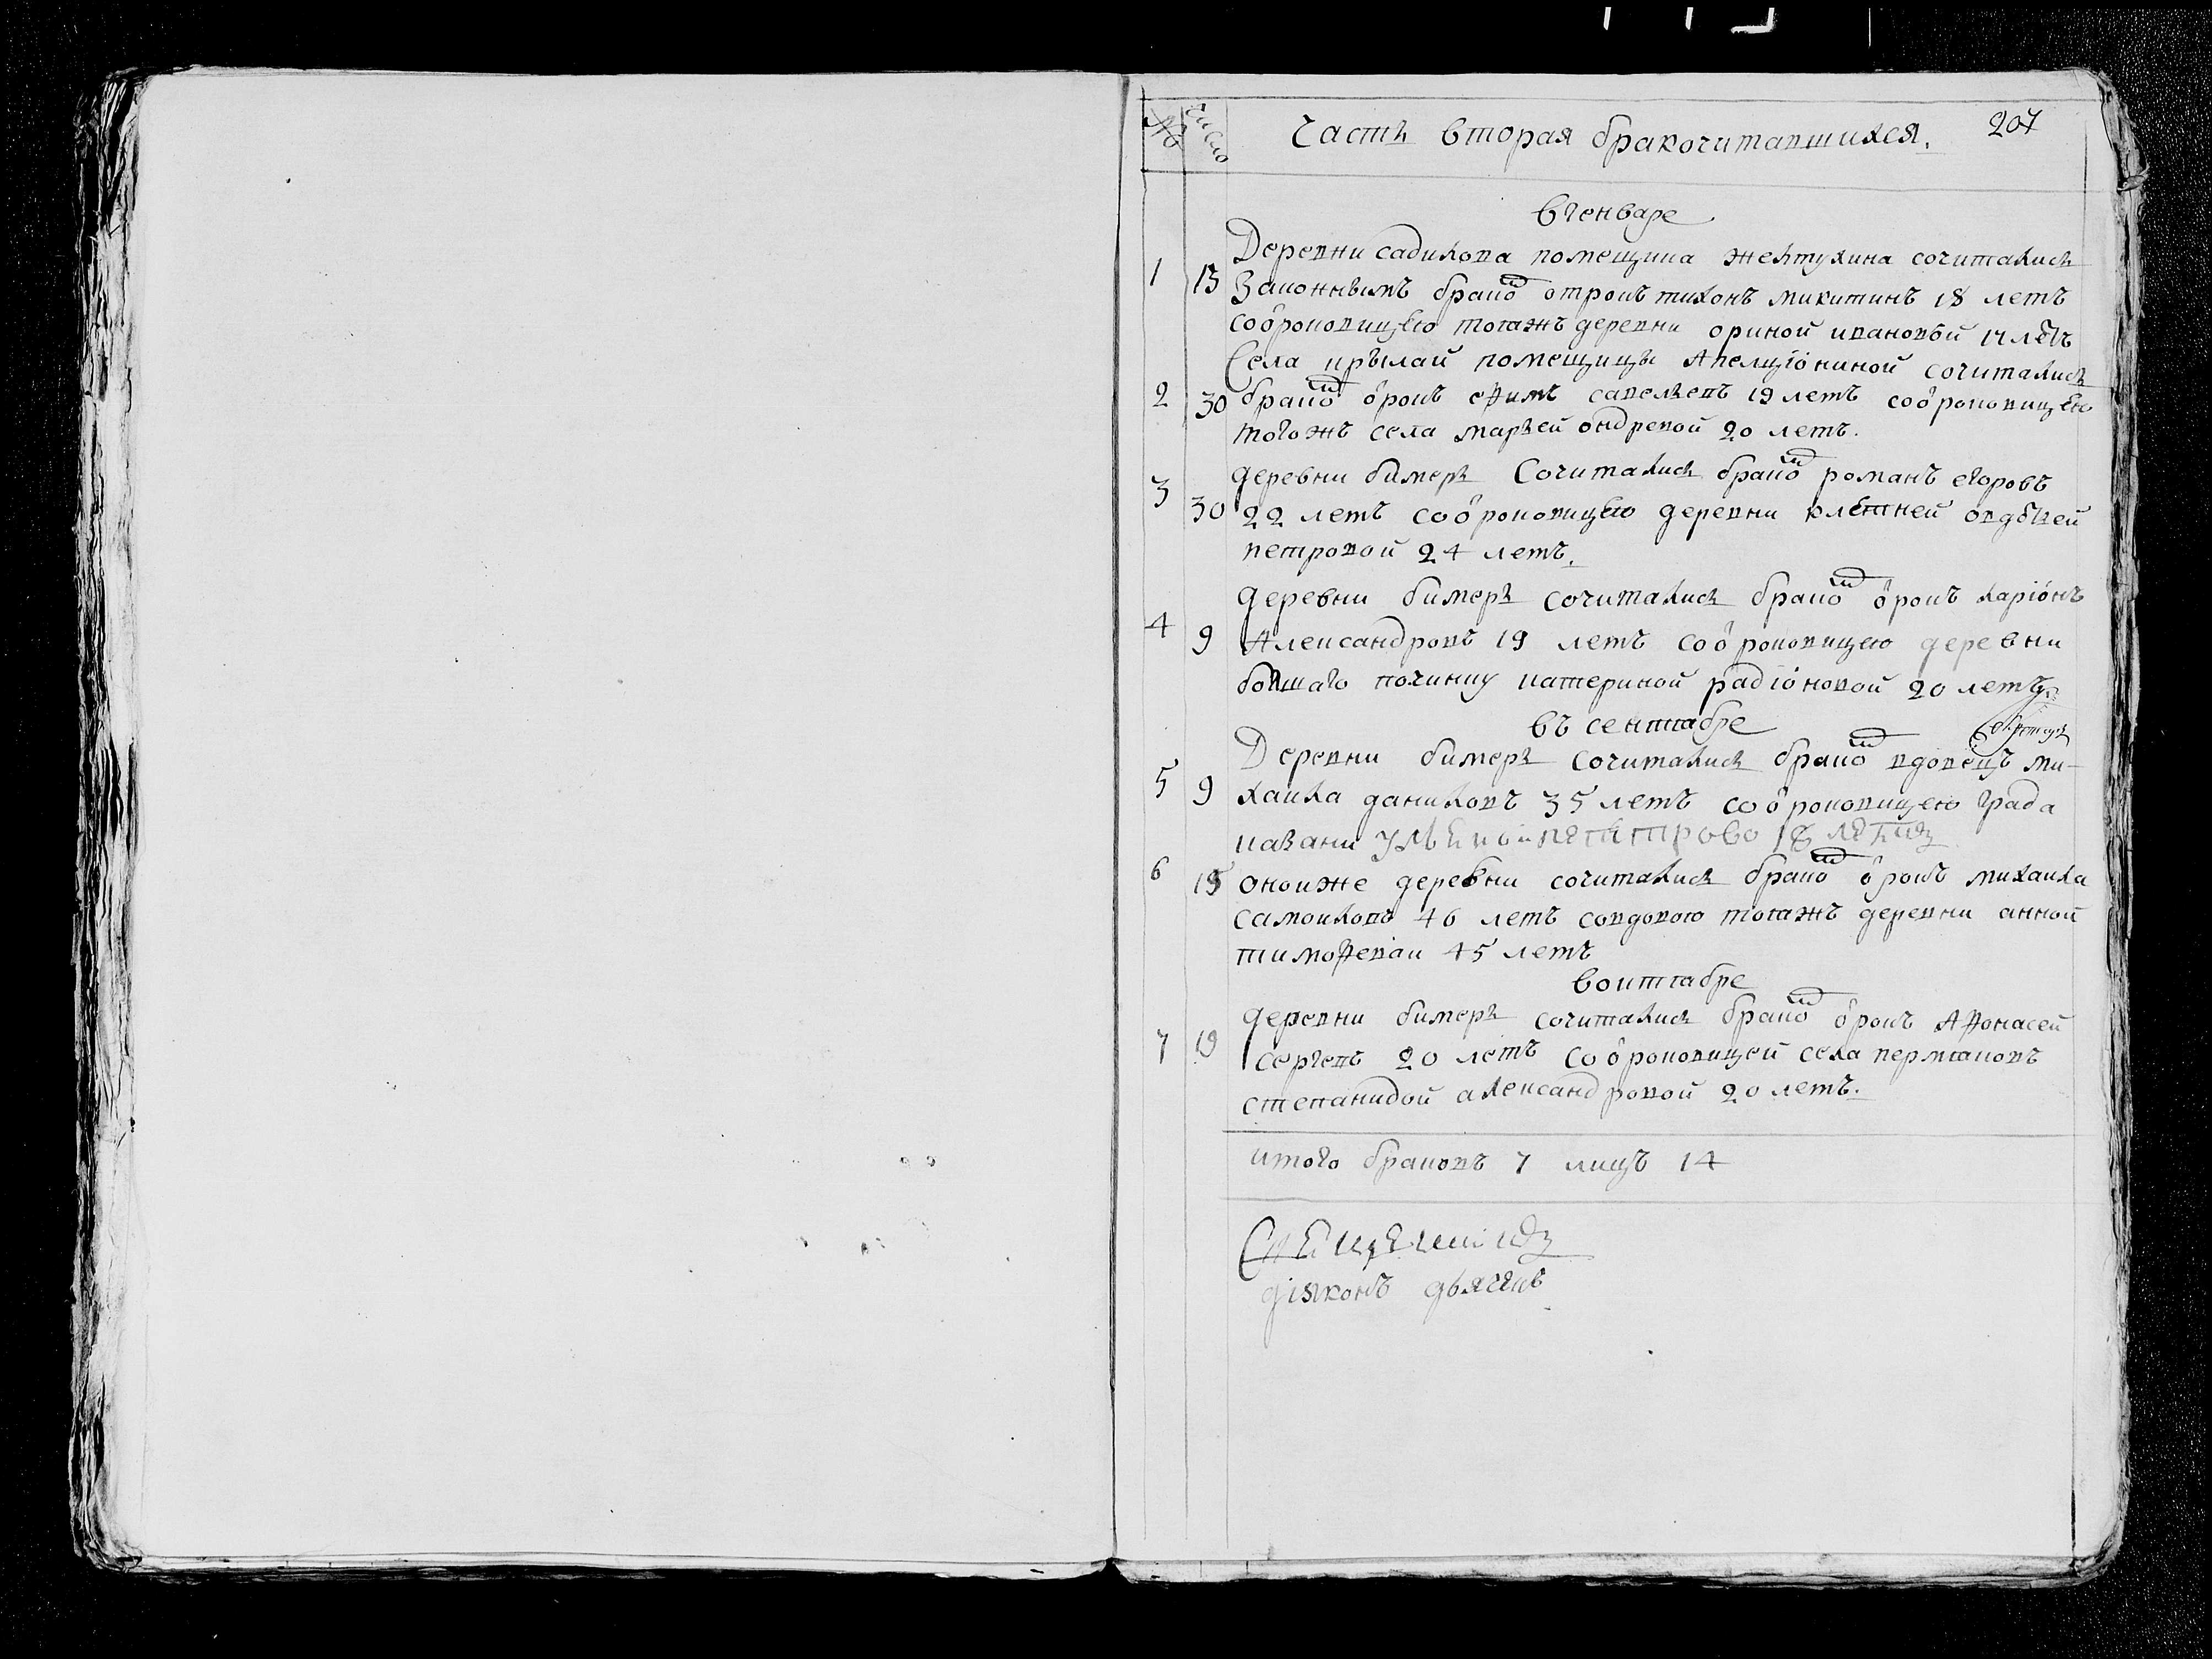 № число Часть вторая бракочитавшихся. 207
в генваре
Деревни садилова помещика желтухина сочитались
1 13 Законнымъ брако отрокъ тихонъ микитинъ 18 летъ
со ѻ̂роковицею тогажъ деревни ориной ивановой 17 лѣтъ
Села крылай помещицы Апелционной сочитались
2 30 брако ѻ̂рокъ ефимъ савельевъ 19 летъ со ѻ̂роковицею
тогожъ села марьей ондревой 20 летъ.
3 деревни бимерь Сочитались брако романъ егоровъ
30 22 летъ со ѻ̂роковицею деревни клѣтней овдотьей
петровой 24 летъ.
деревни бимерь сочитались брако ѻ̂рокъ ларіонъ
4 9 Александровъ 19 летъ со ѻ̂роковицею деревни
болшаго починку катериной радіоновой 20 летъ
въ сентабре
Деревни бимерь сочитались брако вдовецъ ми-
5 9 хаила даниловъ 35 летъ со ѻ̂роковицею града
казани 18
6 15 оноиже деревни сочитались брако ѻ̂рокъ михаила
самоиловъ 46 летъ совдовою тогажъ деревни анной
тимофеваи 45 летъ
воктабре
деревни бимерь сочитались брако ѻ̂рокъ Афонасей
7 19 сергевъ 20 летъ со ѻ̂роковицей села пермяковъ
степанидой александровой 20 летъ.
итого браковъ 7 лицъ 14
дiяконъ